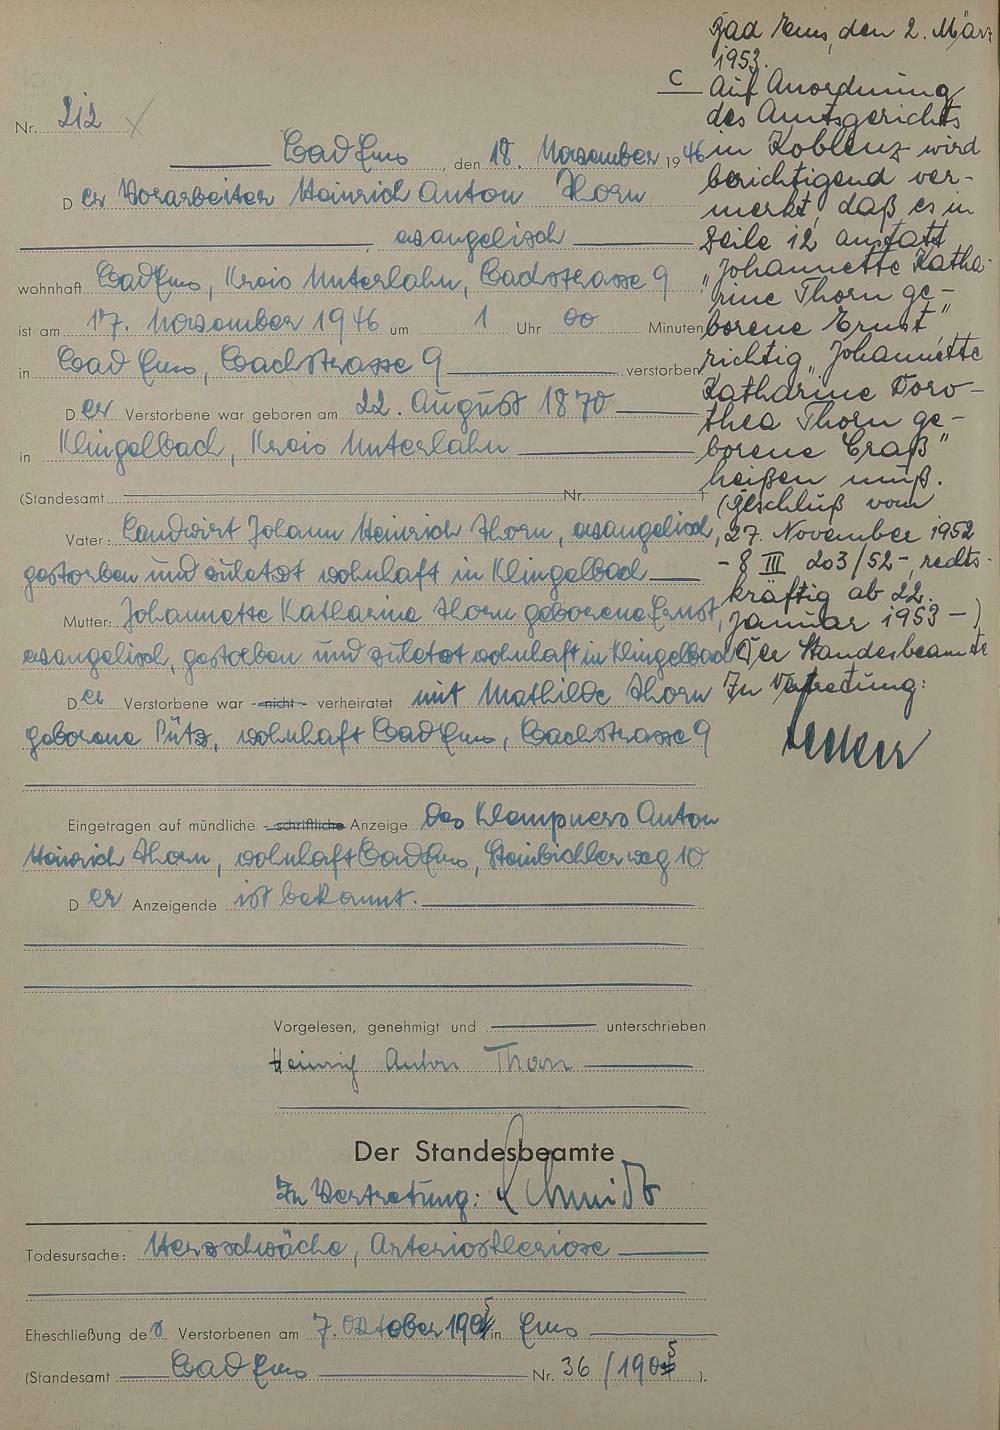 C
Nr. 212
Bad Ems, den 18. November 1946
Der Vorarbeiter Heinrich Anton Thorn
evangelisch
wohnhaft Bad Ems, Kreis Unterlahn, Bachstrasse 9
ist am 17. November 1946 um 1 Uhr 00 Minuten
in Bad Ems, Bachstrasse 9 verstorben.
Der Verstorbene war geboren am 22. August 1870
in Klingelbach, Kreis Unterlahn
(Standesamt Nr. )
Vater: Landwirt Johann Heinrich Thorn, evangelisch,
gestorben und zuletzt wohnhaft in Klingelbach
Mutter: Johannette Katharine Thorn geborene Ernst,
evangelisch, gestorben und zuletzt wohnhaft in Klingelbach
Der Verstorbene war nicht verheiratet mit Mathilde Thorn
geborene Pütz, wohnhaft Bad Ems, Bachstrasse 9
Eingetragen auf mündliche schriftliche Anzeige des Klempners Anton
Heinrich Thorn, wohnhaft Bad Ems, 10
Der Anzeigende ist bekannt.
Vorgelesen, genehmigt und unterschrieben
Heinrich Anton Thorn
Der Standesbeamte
In Vertretung: Schmidt
Todesursache: Herzschwäche,
Eheschließung des Verstorbenen am 7. Oktober 1905 in Ems
(Standesamt Bad Ems Nr. 36/1905 ).
Bad Ems, den 2. März
1953.
Auf Anordnung
des Amtsgerichts
in Koblenz wird
berichtigend ver-
merkt, daß es in
Zeile 12 anstatt
"Johannette Katha-
rine Thorn ge-
borene Ernst"
richtig "Johannette
Katharine Doro-
thea Thorn ge-
borene Craß"
heißen muß.
(Beschluß vom
27. November 1952
- 8 III 203/52 - rechts-
kräftig ab 22.
Januar 1953 -)
Der Standesbeamte
In Vertretung: